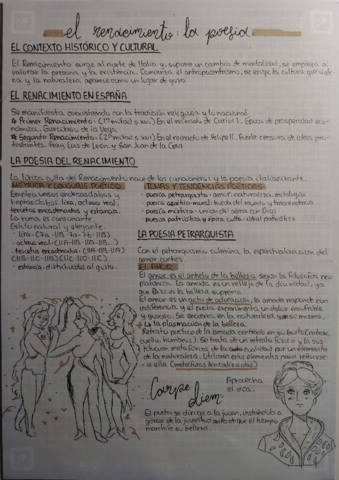 el renacimiento: la poesía
EL CONTEXTO HISTÓRICO Y CULTURAL
El Renacimiento surge al norte de Italia y supone un cambio de mentalidad, se empieza a
valorar la persona y la existencia. Comienza el antropocentrismo, se
y la naturaleza aparece como un lugar de gozo.
EL RENACIMIENTO EN ESPAÑA
Se manifiesta coexistiendo con la tradición religiosa y la nacional.
Primer Renacimiento - (1ª mitad s. XVI) En el reinado de Carlos I. Época de prosperidad eco-
nómica. Garcilaso de la Vega.
Segundo Renacimiento - (2ª mitad s. XVI) En el reinado de Felipe II. Fuerte censura de ideas pro-
testantes. Fray Luis de León y San Juan de la Cruz.
LA POESÍA DEL RENACIMIENTO
La lírica culta del Renacimiento nace de los cancioneros y la poesía italianizante.
MÉTRICA Y LENGUAJE POÉTICO
Emplea versos endecasílabos y
heptasílabos: lira, octava real,
tercetos encadenados y estancia.
La rima es consonante.
Estilo natural y elegante.
TEMAS Y TENDENCIAS POÉTICAS
- poesía petrarquista - amor, naturaleza, mitología
- poesía ascético-moral - huida del mundo y trascendencia
- poesía mística - unión del alma con Dios
- poesía patriótica y épica culta - ideal patriótico
LA POESÍA PETRARQUISTA
Con el petrarquismo culmina la espiritualización del
amor cortés.
EL AMOR
El amor es el anhelo de la belleza, según la filosofía neo-
platónica. La amada es un reflejo de la divinidad y ya
que Dios es la belleza suprema.
El amor es un acto de adoración, la amada responde con
indiferencia y el poeta experimenta un dolor insufrible
y gozoso. Se encierra en la naturaleza y en sí mismo.
La plasmación de la belleza
Retrato poético de la amada centrado en su busto (rostro,
cuello, hombros). Se trata de un retrato físico y la sus-
por un elemento
de la naturaleza. Utilizan estos elementos para referirse
a ella (metáforas lexicalizadas)
Carpe
diem:
Aprovecha
el día.
El poeta se dirige a la joven, instándola a
gozar de la juventud antes de que el tiempo
marchite su belleza.